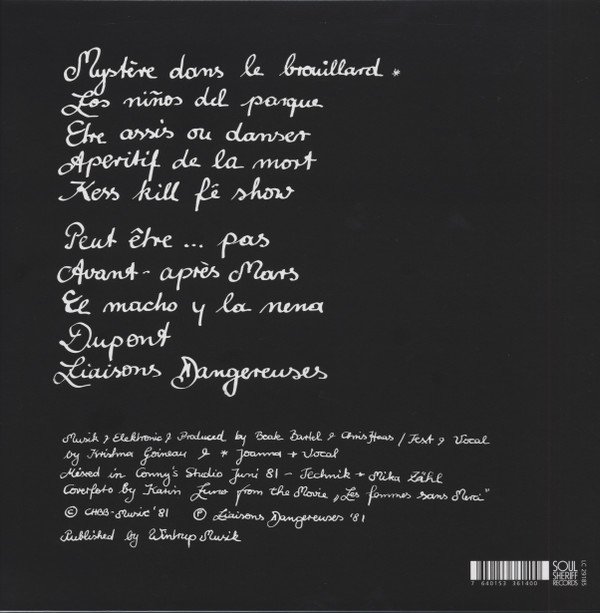 Mystère dans le brouillard *
Los niños del parque
Etre assis ou danser
Aperitif de la mort
Kess kill fê show
Peut être ... pas
Avant - après Mars
El macho y la nena
Dupont
Liaisons Dangereuses
Musik & Elektronic & Produced by Beate Bartel & Chris Haas / Text & Vocal
by Krishna Goineau & * Joanna + Vocal
Mixed in Conny's Studio Juni 81 - Technik + Mika Zähl
Coverfoto by Karin from the Movie „Les femmes sans Merci"
© CHBB-Music '81 ℗ Liaisons Dangereuses '81
Published by Wintrup Musik
7 640153 361400
SOUL
SHERIFF
RECORDS
LC 29185